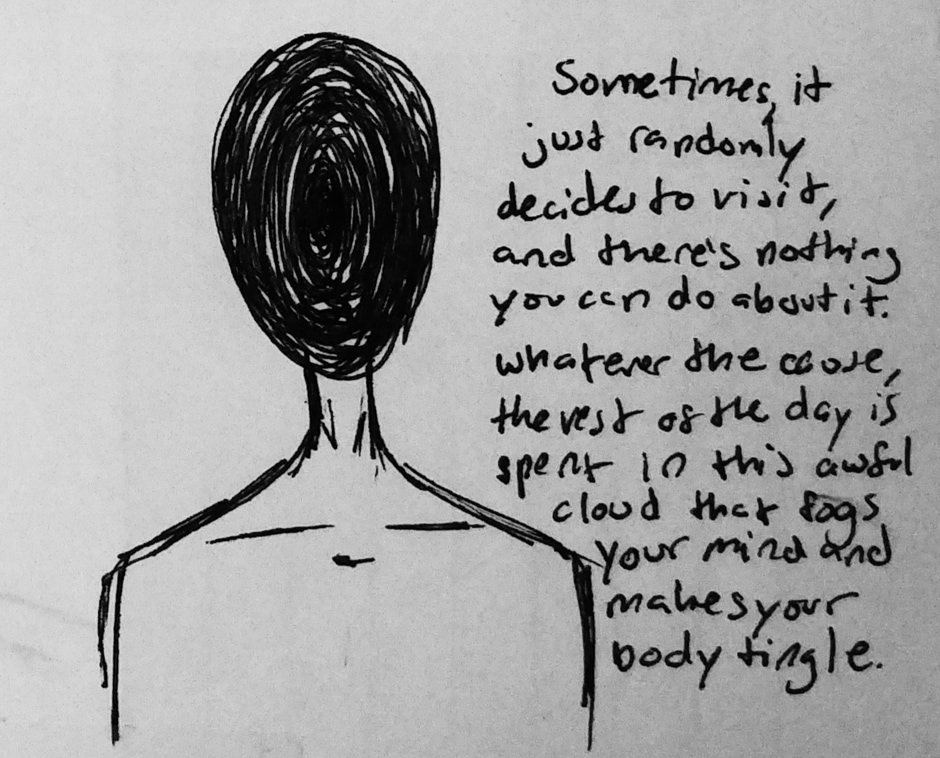 Sometimes, it
just randomly
decides to visit,
and there's nothing
you can do about it.
whatever the cause,
the rest of the day is
spent in this awful
cloud that fogs
your mind and
makes your
body tingle.